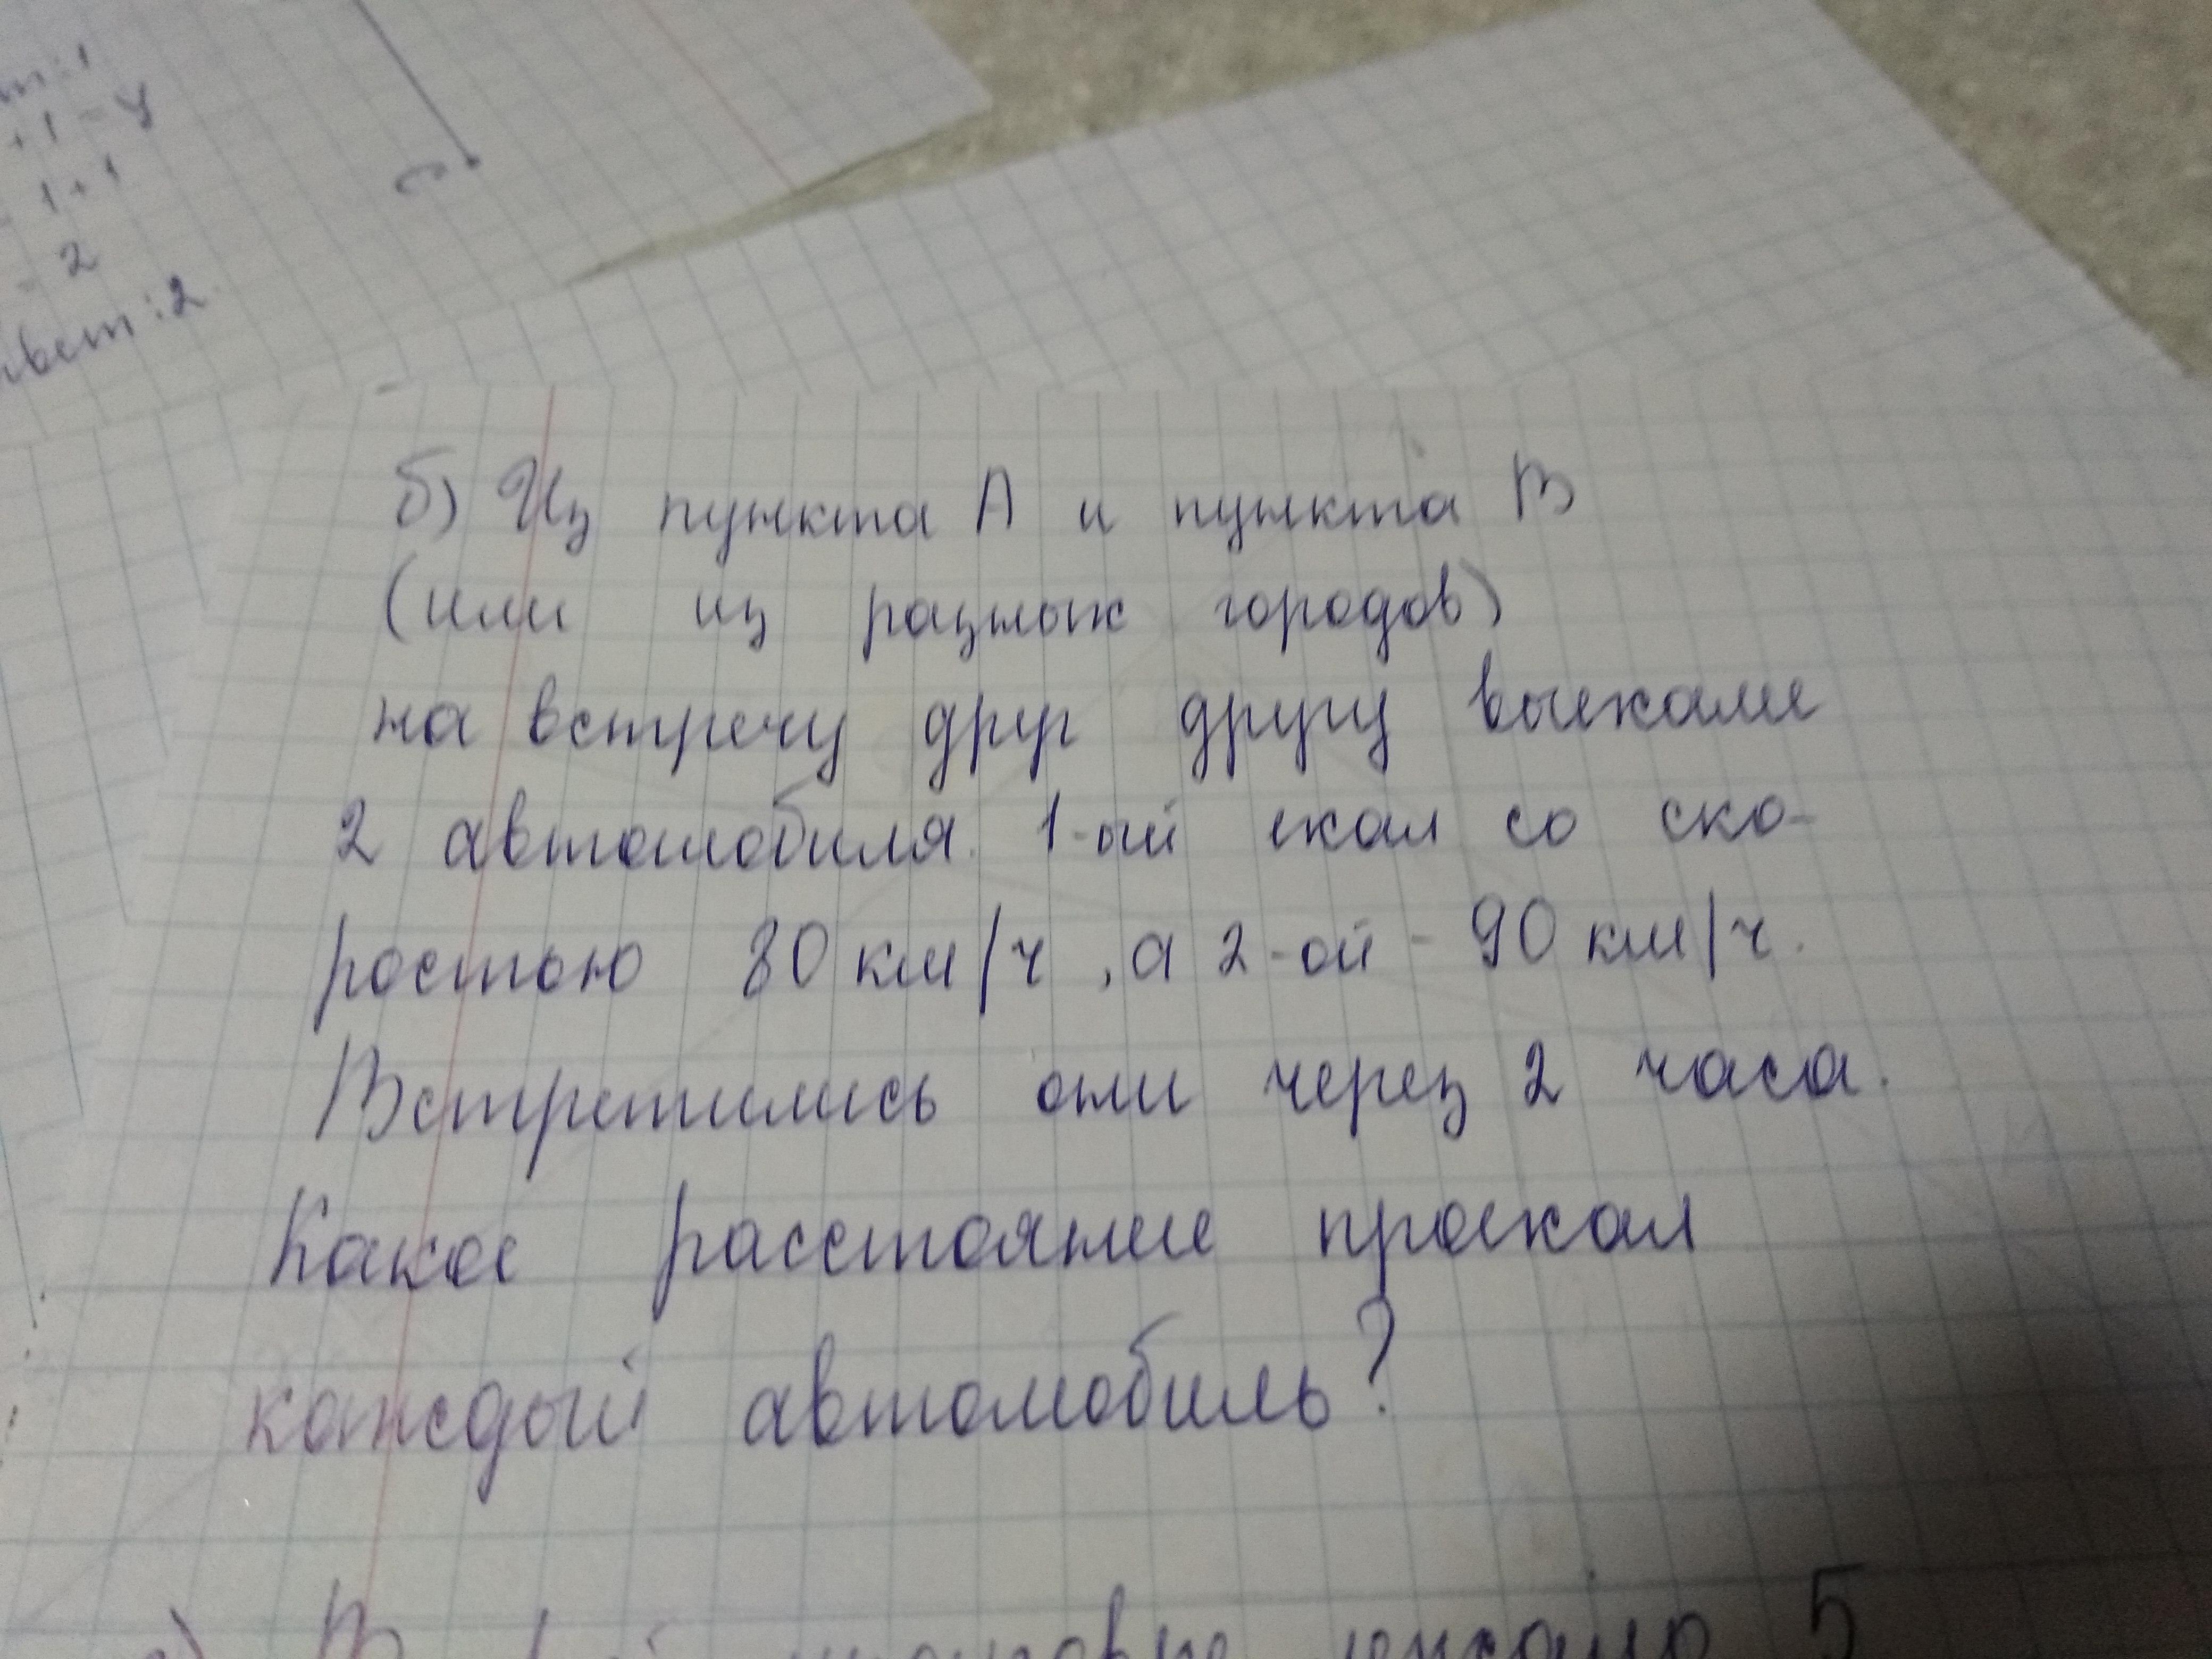 +1=4
1+1
2
:2
б) Из пункта А и пункта В
(или из разных городов)
на встречу друг другу выехали
2 автомобиля. 1-ый ехал со ско-
ростью 80 км/ч, а 2-ой - 90 км/ч.
Встретились они через 2 часа.
Какое расстояние проехал
каждый автомобиль?
лежало 5